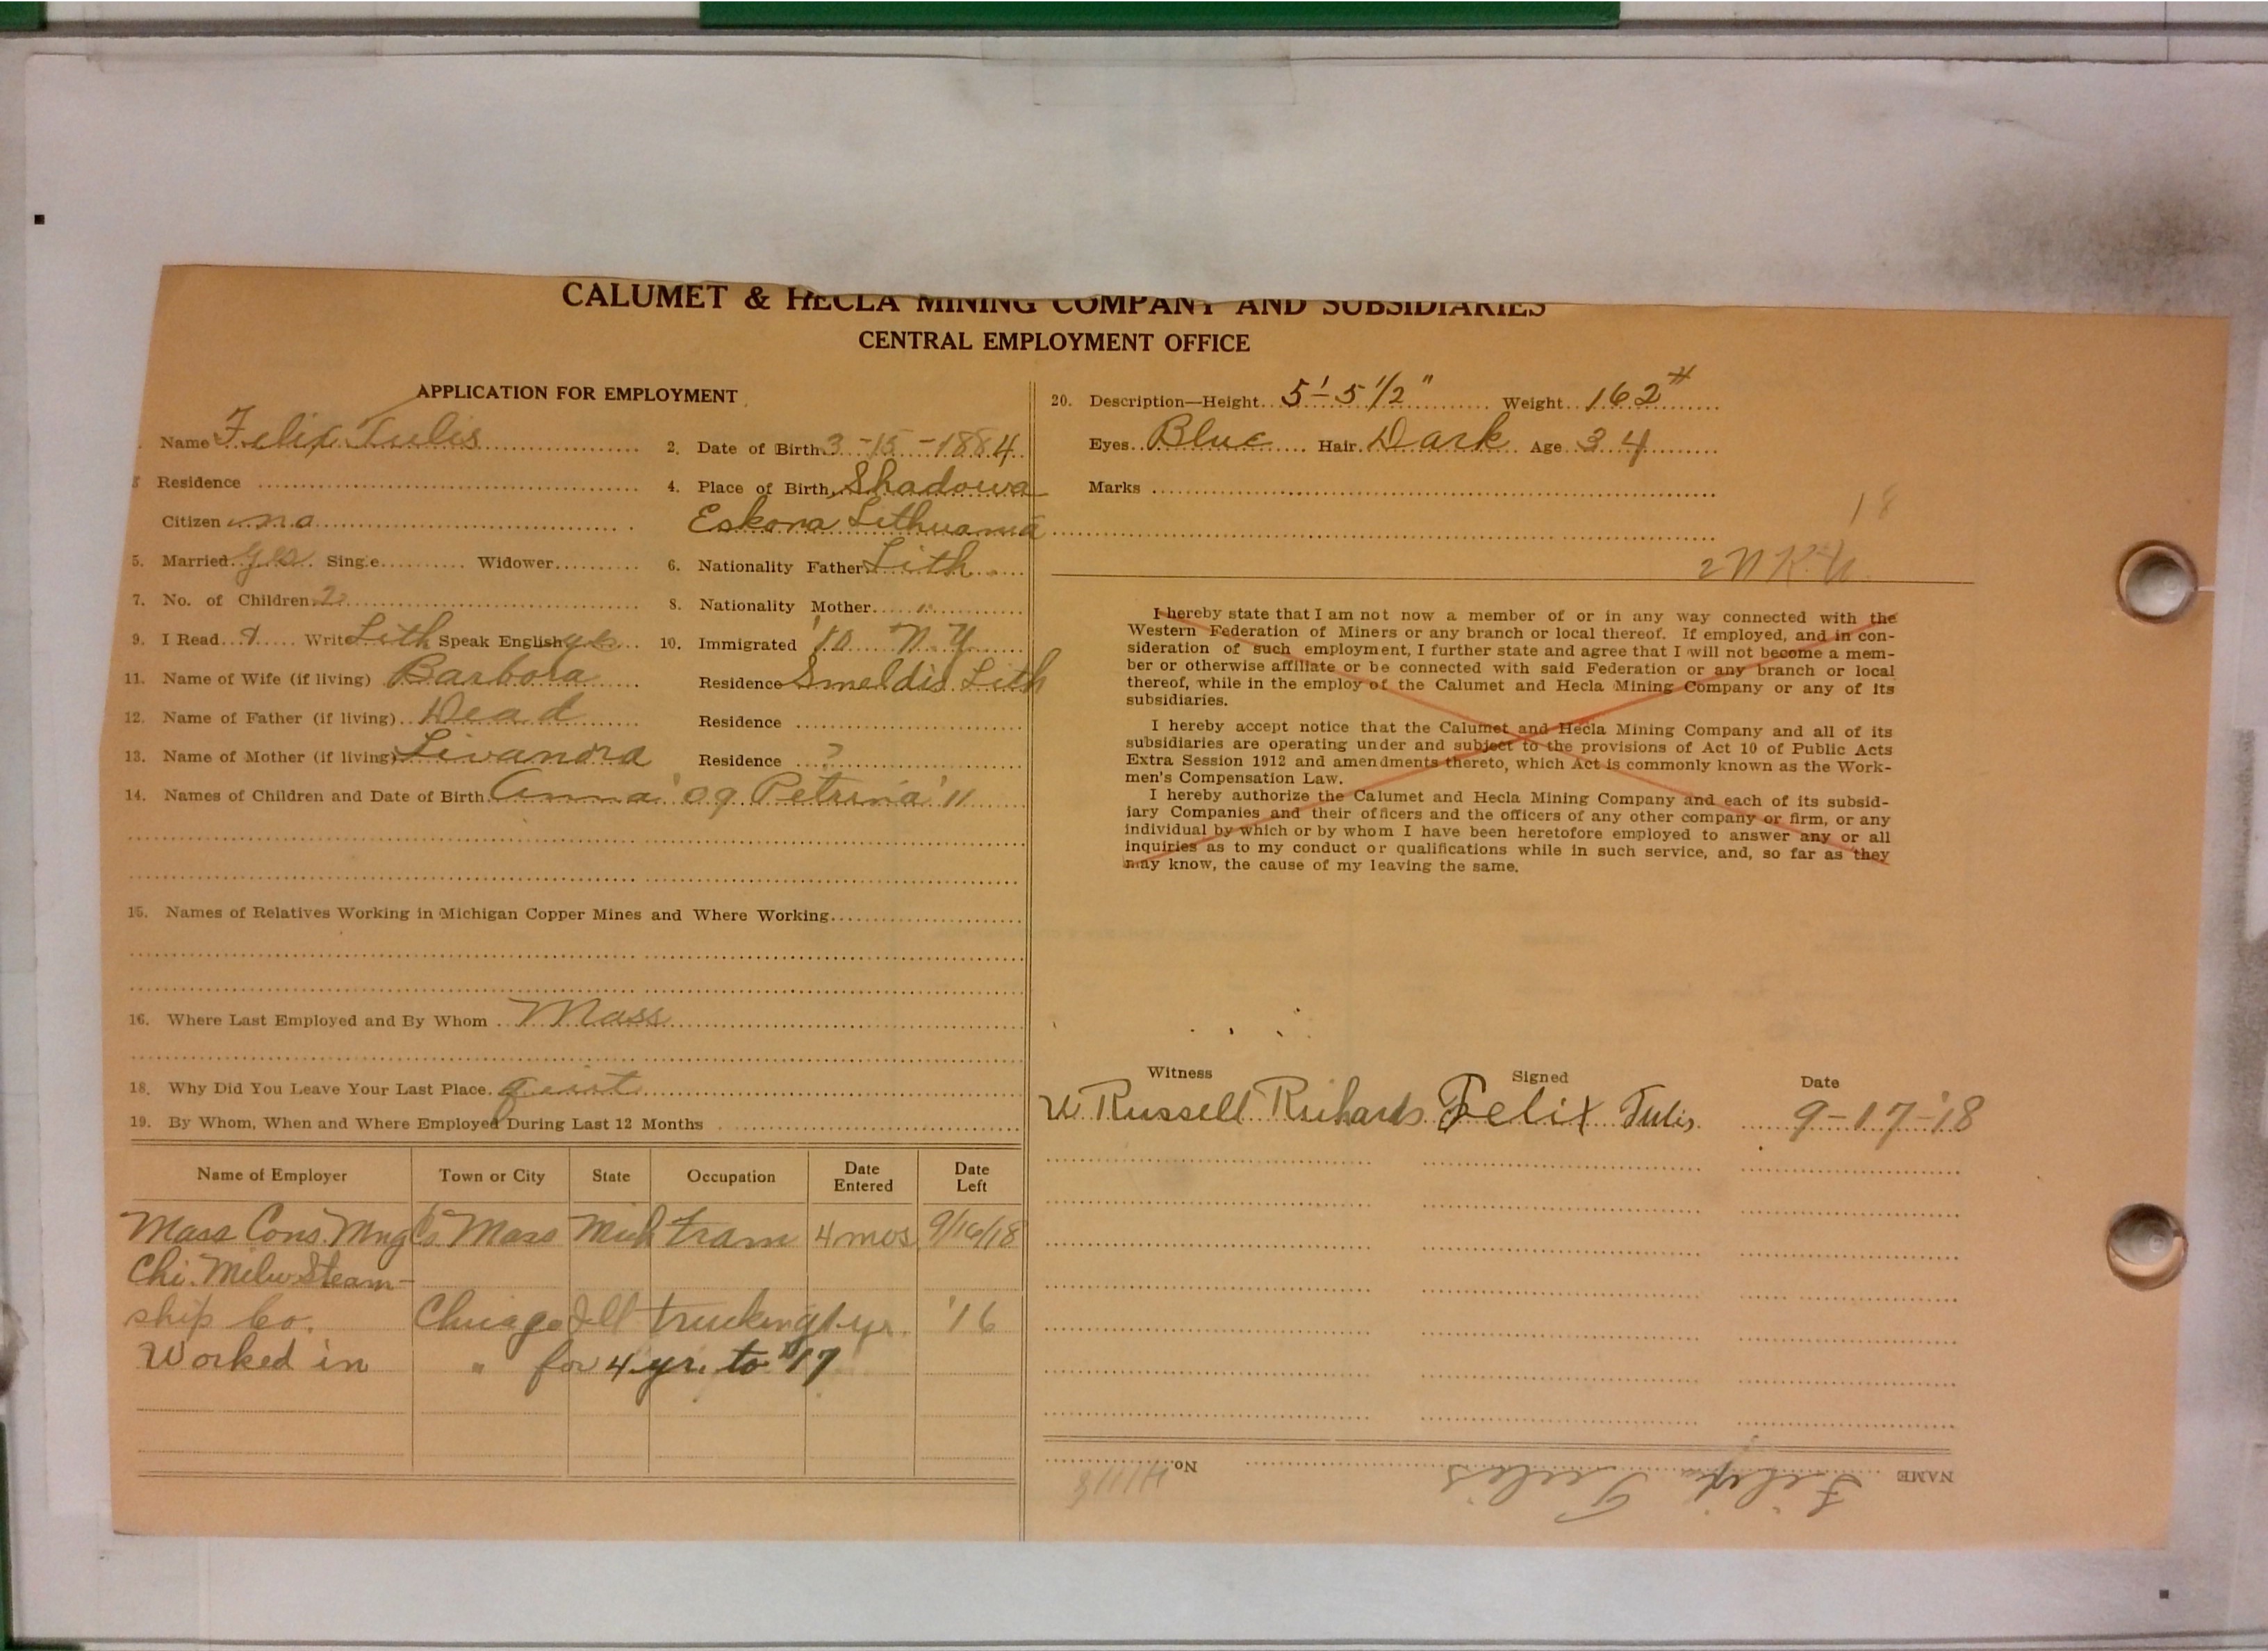 CALUMET & HECLA MINING COMPANY AND SUBSIDIARIES
CENTRAL EMPLOYMENT OFFICE
APPLICATION FOR EMPLOYMENT
Name Felix Tulis
2. Date of Birth 3-15-1884
Residence
4. Place of Birth Shadowa
Citizen no
Eskona Lithuania
5. Married yes Single Widower
6. Nationality Father Lith
7. No. of Children 2
8. Nationality Mother "
9. I Read & Write Lith Speak English yes
10. Immigrated '10 N.Y.
11. Name of Wife (if living) Barbora
Residence Smeldis Lith
12. Name of Father (if living) Dead
Residence
13. Name of Mother (if living) Livandra
Residence ?
14. Names of Children and Date of Birth Anna '09 Petrina '11
15. Names of Relatives Working in Michigan Copper Mines and Where Working
16. Where Last Employed and By Whom Mass
18. Why Did You Leave Your Last Place. quit
19. By Whom, When and Where Employed During Last 12 Months
Name of Employer Town or City State Occupation Date Entered Date Left
Mass Cons. Mng Co Mass Mich tram 4 mos 9/16/18
Chi. Milw Steam-
ship Co. Chicago Ill trucking 1 yr. '16
Worked in " for 4 yr. to '17
20. Description—Height 5'-5 1/2" Weight 162#
Eyes Blue Hair Dark Age 34
Marks
18
I hereby state that I am not now a member of or in any way connected with the
Western Federation of Miners or any branch or local thereof. If employed, and in con-
sideration of such employment, I further state and agree that I will not become a mem-
ber or otherwise affiliate or be connected with said Federation or any branch or local
thereof, while in the employ of the Calumet and Hecla Mining Company or any of its
subsidiaries.
I hereby accept notice that the Calumet and Hecla Mining Company and all of its
subsidiaries are operating under and subject to the provisions of Act 10 of Public Acts
Extra Session 1912 and amendments thereto, which Act is commonly known as the Work-
men's Compensation Law.
I hereby authorize the Calumet and Hecla Mining Company and each of its subsid-
iary Companies and their officers and the officers of any other company or firm, or any
individual by which or by whom I have been heretofore employed to answer any or all
inquiries as to my conduct or qualifications while in such service, and, so far as they
may know, the cause of my leaving the same.
Witness Signed Date
W Russell Richards Felix Tulis 9-17-'18
NAME Felix Tulis No.